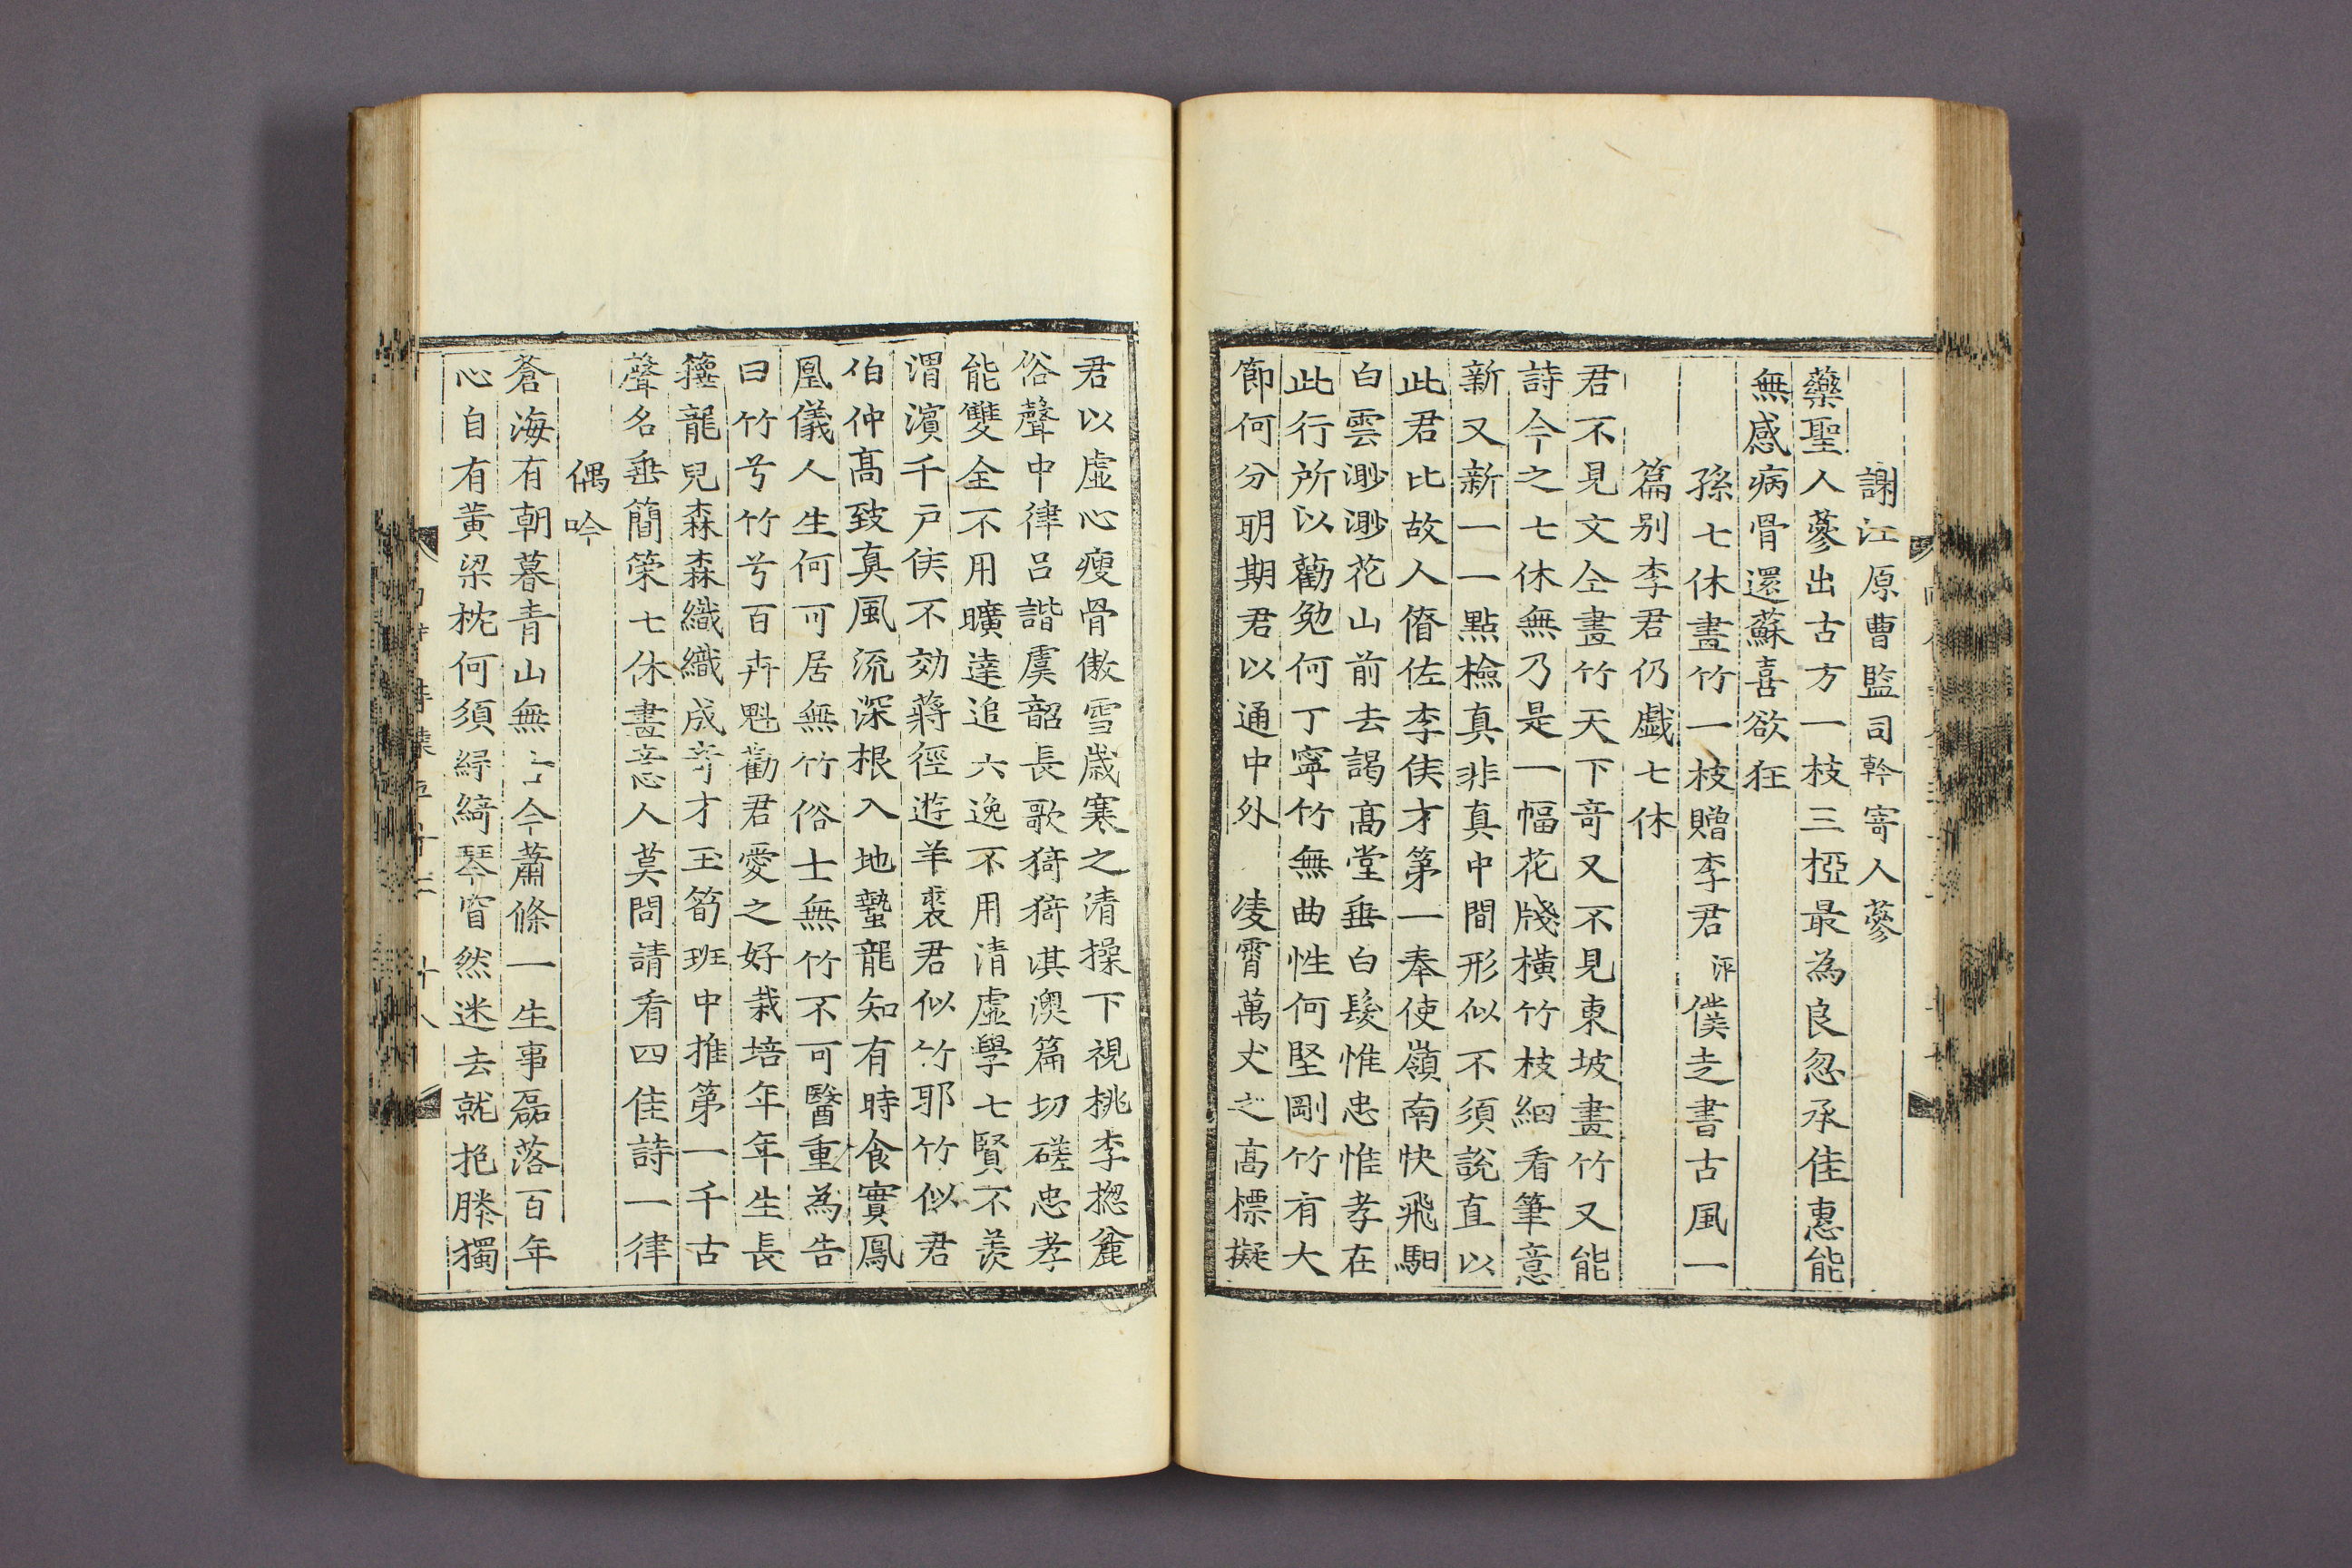 謝江原曹監司幹寄人蔘
藥聖人蔘出古方一枝三椏最為良忽承佳惠能
無感病骨還蘇喜欲狂
孫七休畫竹一枝贈李君泙僕走書古風一
篇別李君仍戱七休
君不見文仝畫竹天下奇又不見東坡畫竹又能
詩今之七休無乃是一幅花牋橫竹枝細看筆意
新又新一一點檢真非真中間形似不須說直以
此君比故人僚佐李侯才第一奉使嶺南快飛馹
白雲渺渺花山前去謁髙堂垂白髮惟忠惟孝在
此行所以勸勉何丁寧竹無曲性何堅剛竹有大
節何分明期君以通中外 凌霄萬丈之髙標擬
君以虛心瘦骨傲雪歲寒之清操下視桃李揔麄
俗聲中律呂諧虞韶長歌猗猗淇澳篇切磋忠孝
能雙全不用曠達追六逸不用清虛學七賢不羨
渭濱千戶侯不効蔣徑遊羊裘君似竹耶竹似君
伯仲髙致真風流深根入地蟄龍知有時食實鳳
凰儀人生何可居無竹俗士無竹不可醫重為告
曰竹兮竹兮百卉魁勸君愛之好栽培年年生長
籜龍兒森森織織成奇才玉筍班中推第一千古
聲名垂簡策七休畫意人莫問請看四佳詩一律
偶吟
蒼海有朝暮青山無古今蕭條一生事磊落百年
心自有黃梁枕何須綠綺琴窅然迷去就抱膝獨